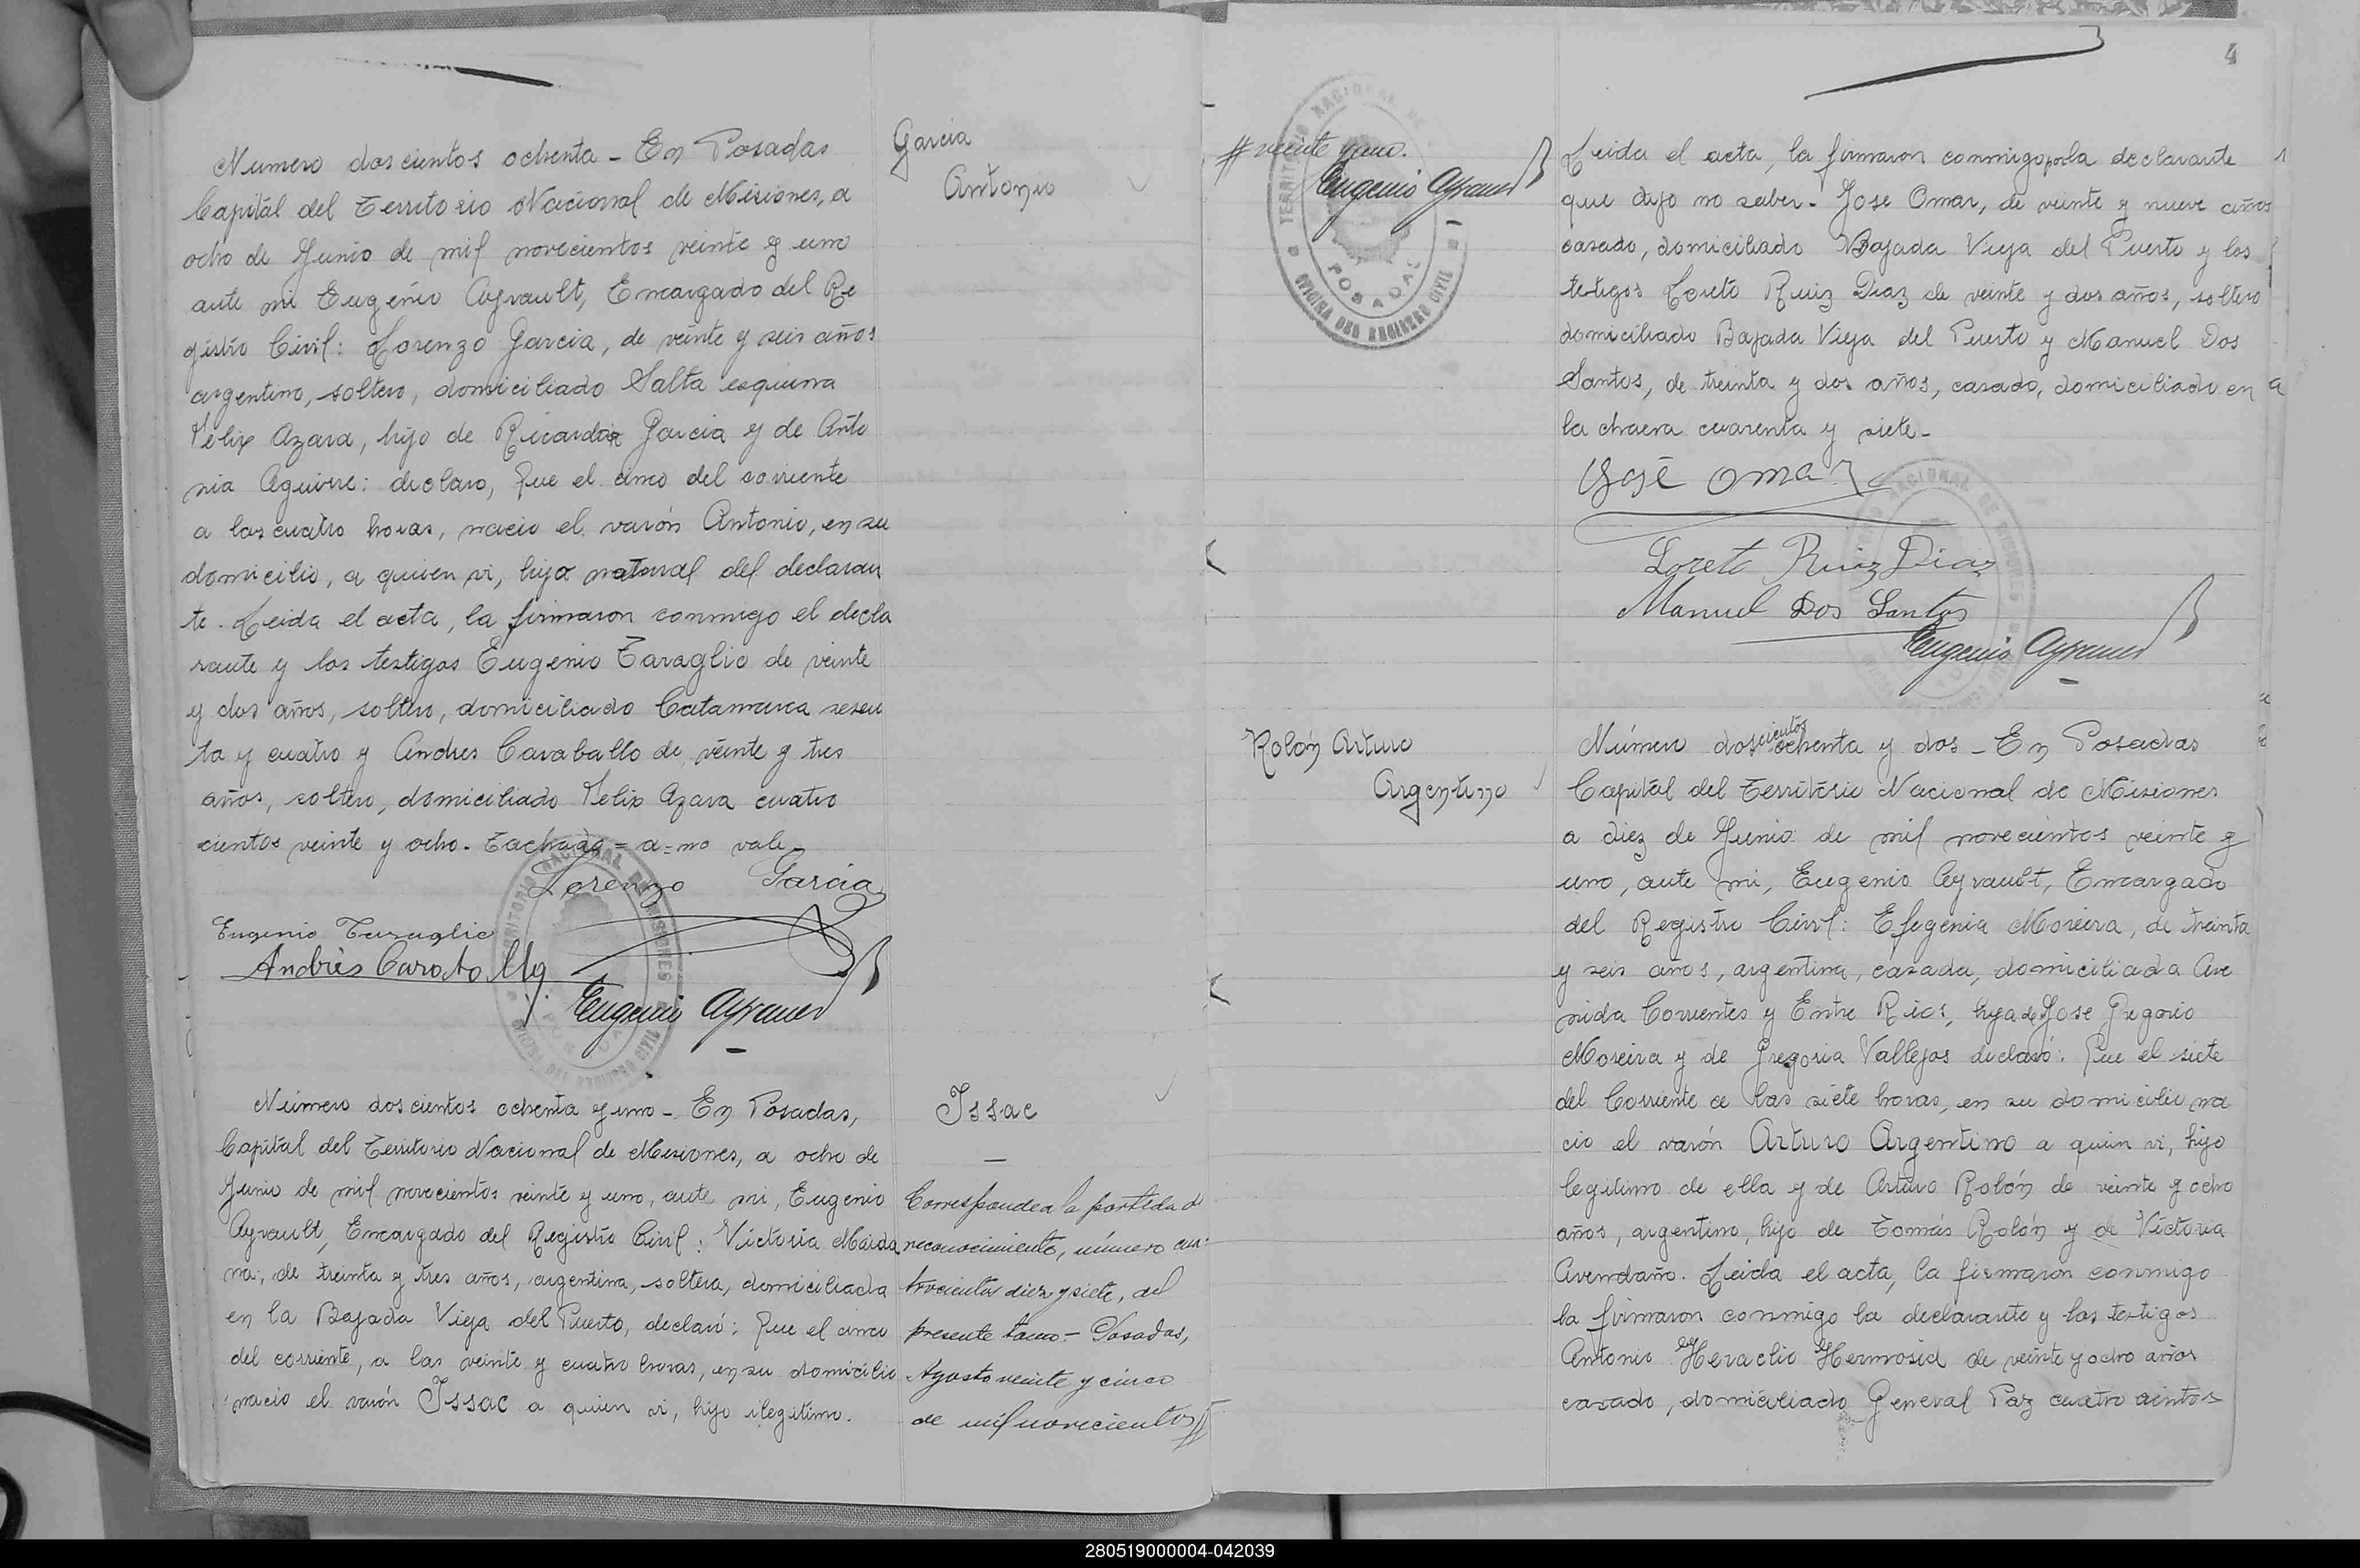 Número dos cientos ochenta - En Posadas
Capital del Territorio Nacional de Misiones, a
ocho de Junio de mil novecientos veinte y uno
ante mi Eugenio Ayrault, Encargado del Re
gistro Civil: Lorenzo Garcia, de veinte y seis años
argentino, soltero, domiciliado Salta esquina
Felix Azara, hijo de Ricardo Garcia y de Anto
nia Aguirre: declaro, Que el cinco del corriente
a las cuatro horas, nacio el varón Antonio, en su
domicilio, a quien vi, hijo natural del declaran
te. Leida el acta, la firmaron conmigo el decla
rante y los testigos Eugenio Taraglio de veinte
y dos años, soltero, domiciliado Catamarca sesen
ta y cuatro y Andres Caraballo de veinte y tres
años, soltero, domiciliado Felix Azara cuatro
cientos veinte y ocho. Tachado = a = no vale -
Lorenzo Garcia
Eugenio Taraglio
Andrés
Eugenio Ayrault
Garcia
Antonio
Número dos cientos ochenta y uno - En Posadas,
Capital del Territorio Nacional de Misiones, a ocho de
Junio de mil novecientos veinte y uno, ante mi, Eugenio
Ayrault, Encargado del Registro Civil: Victoria Maida
na, de treinta y tres años, argentina, soltera, domiciliada
en la Bajada Vieja del Puerto, declaró: Que el cinco
del corriente, a las veinte y cuatro horas, en su domicilio
nacio el varón Issac a quien vi, hijo ilegitimo.
Issac
Corresponde a la partida d
reconocimiento, número cua-
trocientos diez y siete, del
presente tomo - Posadas,
Agosto veinte y cinco
de mil novecientos //
4
# veinte y uno.
Eugenio Ayrault
TERRITORIO NACIONAL DE
POSADAS
OFICINA DEL REGISTRO CIVIL
Leida el acta, la firmaron conmigo por la declarante
que dijo no saber - Jose Omar, de veinte y nueve años
casado, domiciliado Bajada Vieja del Puerto y los
testigos Loreto Ruiz Diaz de veinte y dos años, soltero
domiciliado Bajada Vieja del Puerto y Manuel Dos
Santos, de treinta y dos años, casado, domiciliado en
la chacra cuarenta y siete -
José Omar
Loreto Ruiz Diaz
Manuel Dos Santos
Eugenio Ayrault
Rolón Arturo
Argentino
Número dos cientos ochenta y dos - En Posadas
Capital del Territorio Nacional de Misiones
a diez de Junio de mil novecientos veinte y
uno, ante mi, Eugenio Ayrault, Encargado
del Registro Civil: Efegenia Moreira, de treinta
y seis años, argentina, casada, domiciliada Ave
nida Corrientes y Entre Rios, hija de Jose Gregorio
Moreira y de Gregoria Vallejos declaró: Que el siete
del Corriente a las siete horas, en su domicilio na
cio el varón Arturo Argentino a quien vi, hijo
legitimo de ella y de Arturo Rolón de veinte y ocho
años, argentino, hijo de Tomás Rolón y de Victoria
Avendaño. Leida el acta, la firmaron conmigo
la firmaron conmigo la declarante y los testigos
Antonio Heraclio Hermosid de veinte y ocho años
casado, domiciliado General Paz cuatro cientos
280519000004-042039